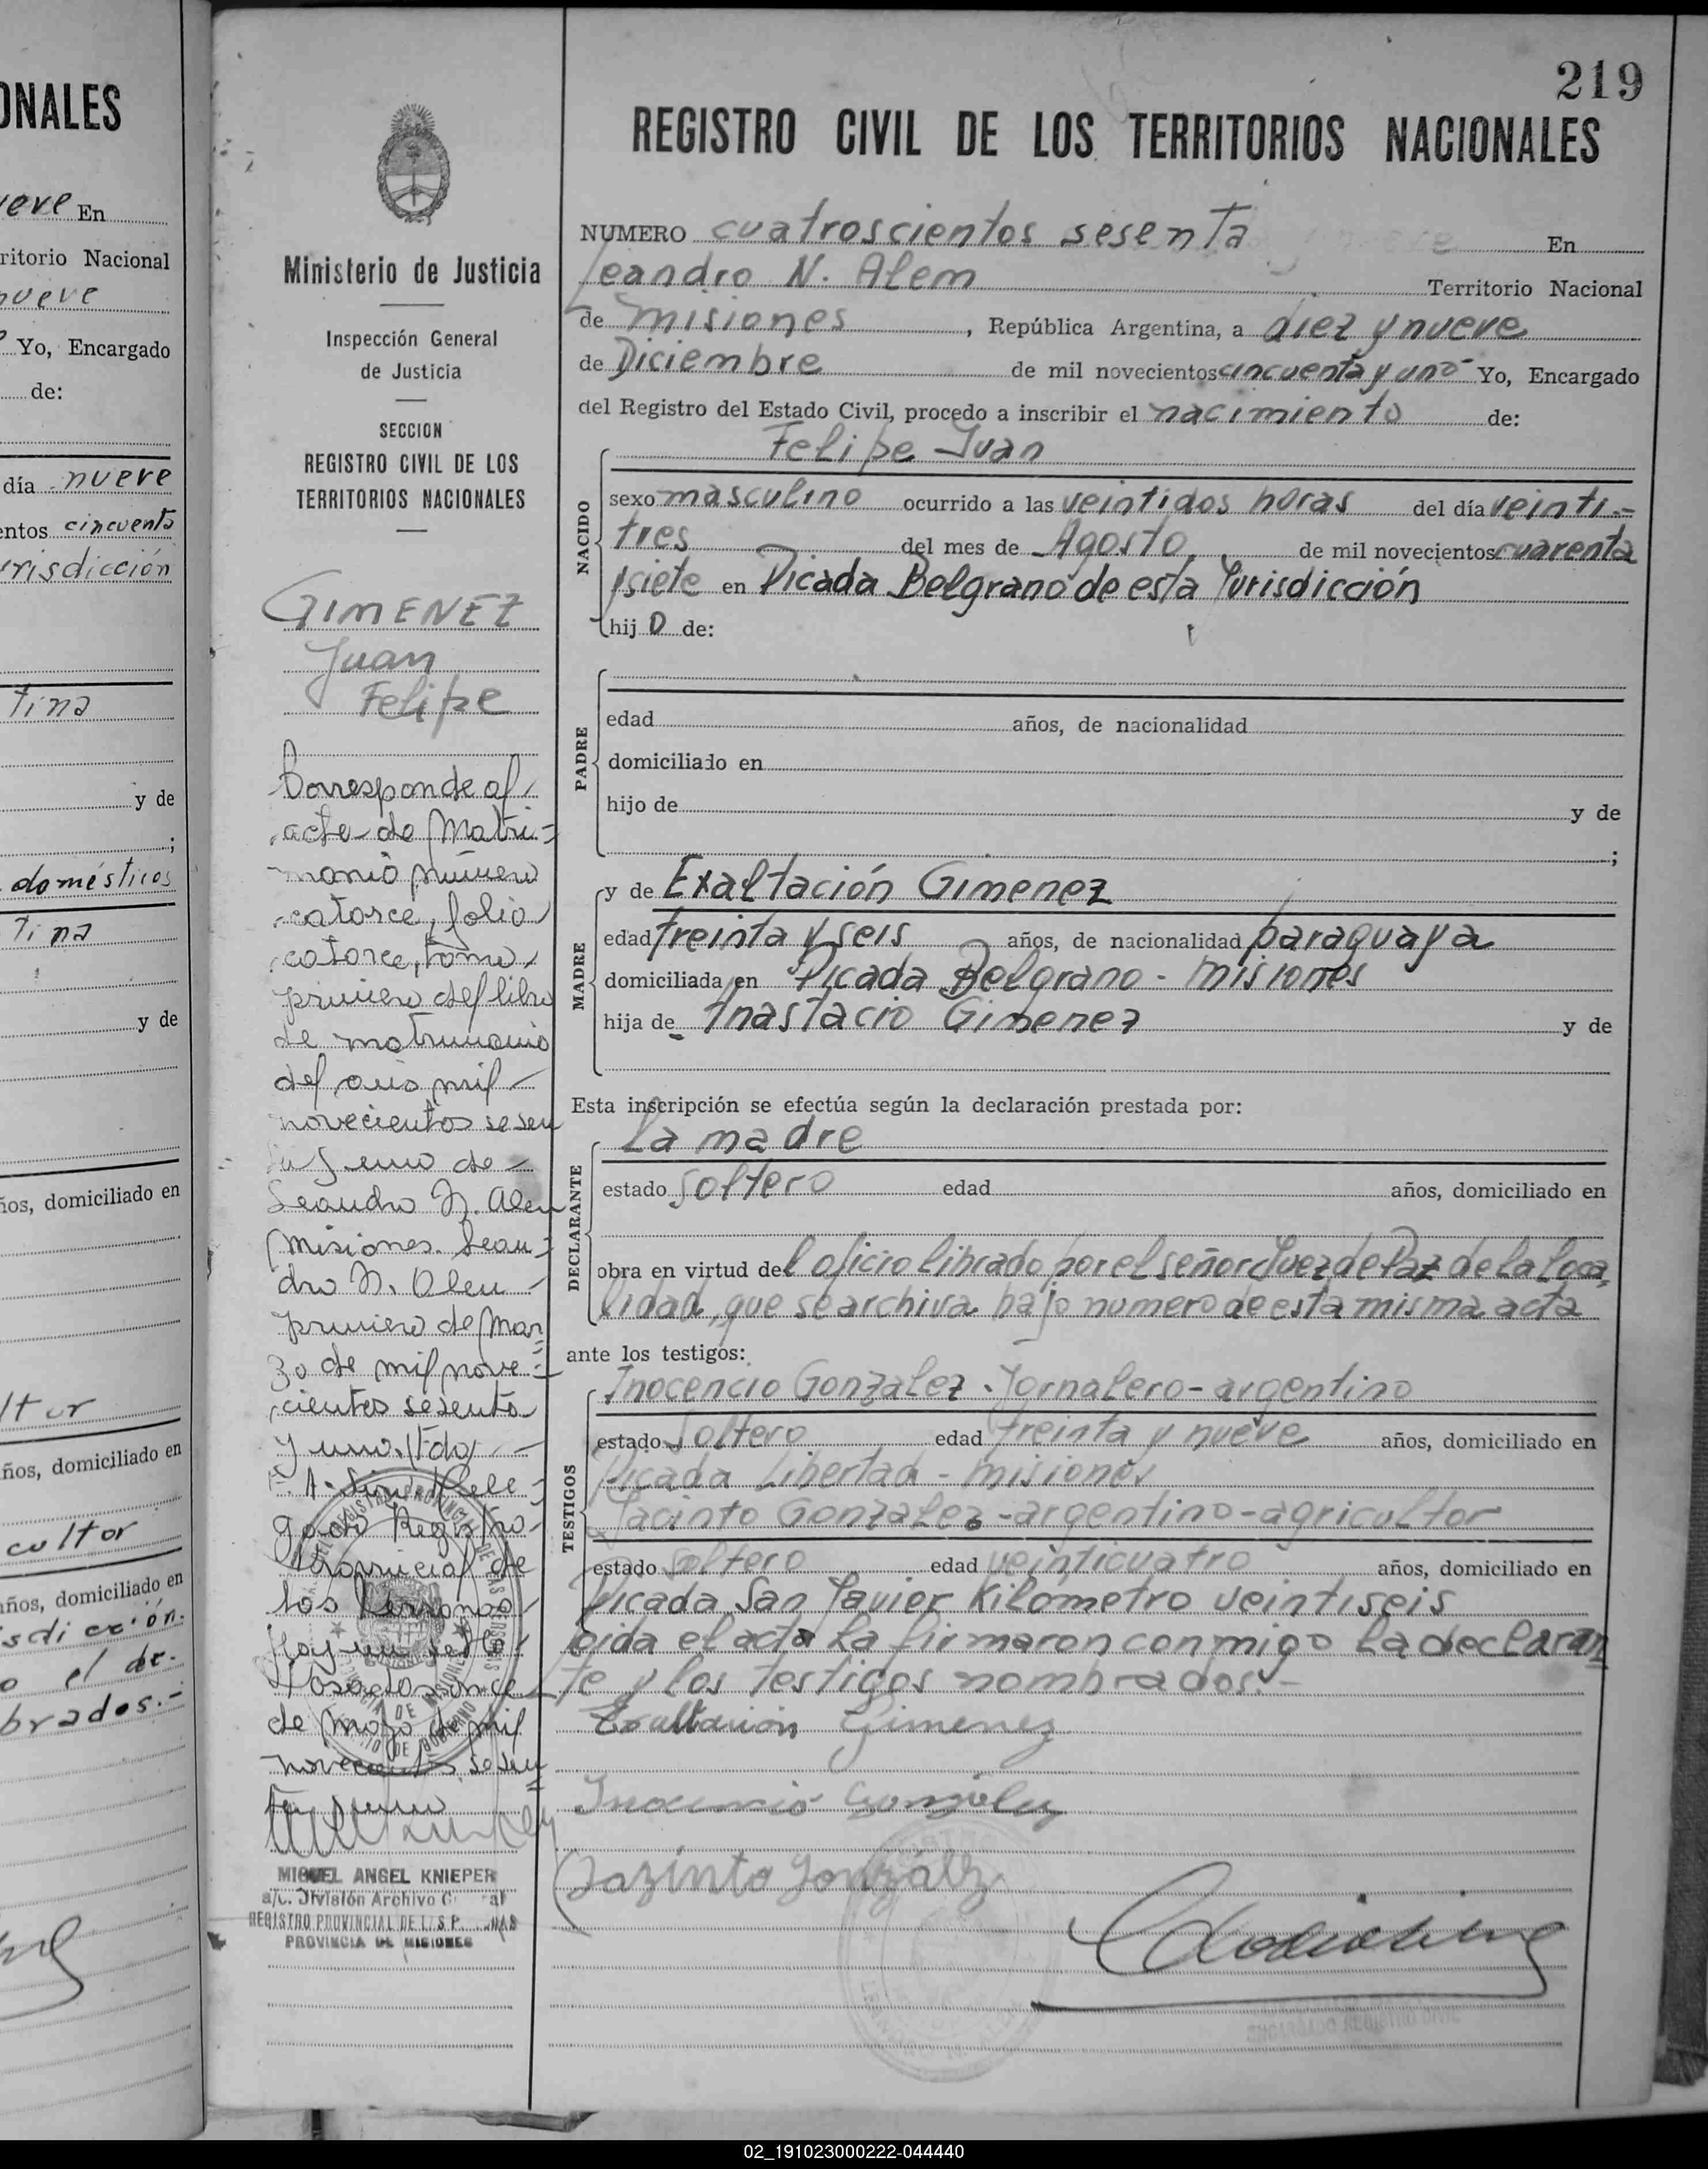 ONALES
nueve En
ritorio Nacional
nueve
Yo, Encargado
de:
día nueve
entos cincuenta
risdicción
tina
y de
;
domésticos
tina
y de
ños, domiciliado en
ltor
ños, domiciliado en
cultor
años, domiciliado en
sdicción.
o el de-
brados.-
Ministerio de Justicia
Inspección General
de Justicia
SECCION
REGISTRO CIVIL DE LOS
TERRITORIOS NACIONALES
GIMENEZ
Juan
Felipe
Corresponde al
acta de Matri=
monio número
catorce, folio
catorce, tomo
primero del libro
de matrimonio
del año mil
novecientos sesen
ta y uno de
Leandro N. Alem
Misiones. Lean-
dro N. Alem
primero de Mar
zo de mil nove=
cientos sesenta
y uno. Fdo
Registro
Provincial de
las Personas
de mil
novecientos sesen
ta y uno
MIGUEL ANGEL KNIEPER
a/c. División Archivo
REGISTRO PROVINCIAL DE
PROVINCIA DE MISIONES
219
REGISTRO CIVIL DE LOS TERRITORIOS NACIONALES
NUMERO cuatroscientos sesenta En
Leandro N. Alem Territorio Nacional
de Misiones, República Argentina, a diez y nueve
de Diciembre de mil novecientos cincuenta y uno Yo, Encargado
del Registro del Estado Civil, procedo a inscribir el nacimiento de:
Felipe Juan
NACIDO
sexo masculino ocurrido a las veintidos horas del día veinti-
tres del mes de Agosto de mil novecientos cuarenta
ysiete en Picada Belgrano de esta Jurisdicción
hij o de:
PADRE
edad años, de nacionalidad
domiciliado en
hijo de y de
;
MADRE
y de Exaltación Gimenez
edad treinta y seis años, de nacionalidad paraguaya
domiciliada en Picada Belgrano - Misiones
hija de Anastacio Gimenez y de
Esta inscripción se efectúa según la declaración prestada por:
DECLARANTE
La madre
estado soltero edad años, domiciliado en
obra en virtud del oficio librado por el señor Juez de Paz de la Loca-
lidad, que se archiva bajo numero de esta misma acta
ante los testigos:
TESTIGOS
Inocencio Gonzalez - Jornalero - argentino
estado Soltero edad treinta y nueve años, domiciliado en
Picada Libertad - Misiones
Jacinto Gonzalez - argentino - agricultor
estado soltero edad veinticuatro años, domiciliado en
Picada San Javier Kilometro veintiseis
Leida el acta la firmaron conmigo la declaran
te y los testigos nombrados.-
Exaltacion Gimenez
Inocencio González
Jazinto González
ENCARGADO REGISTRO CIVIL
02_191023000222-044440